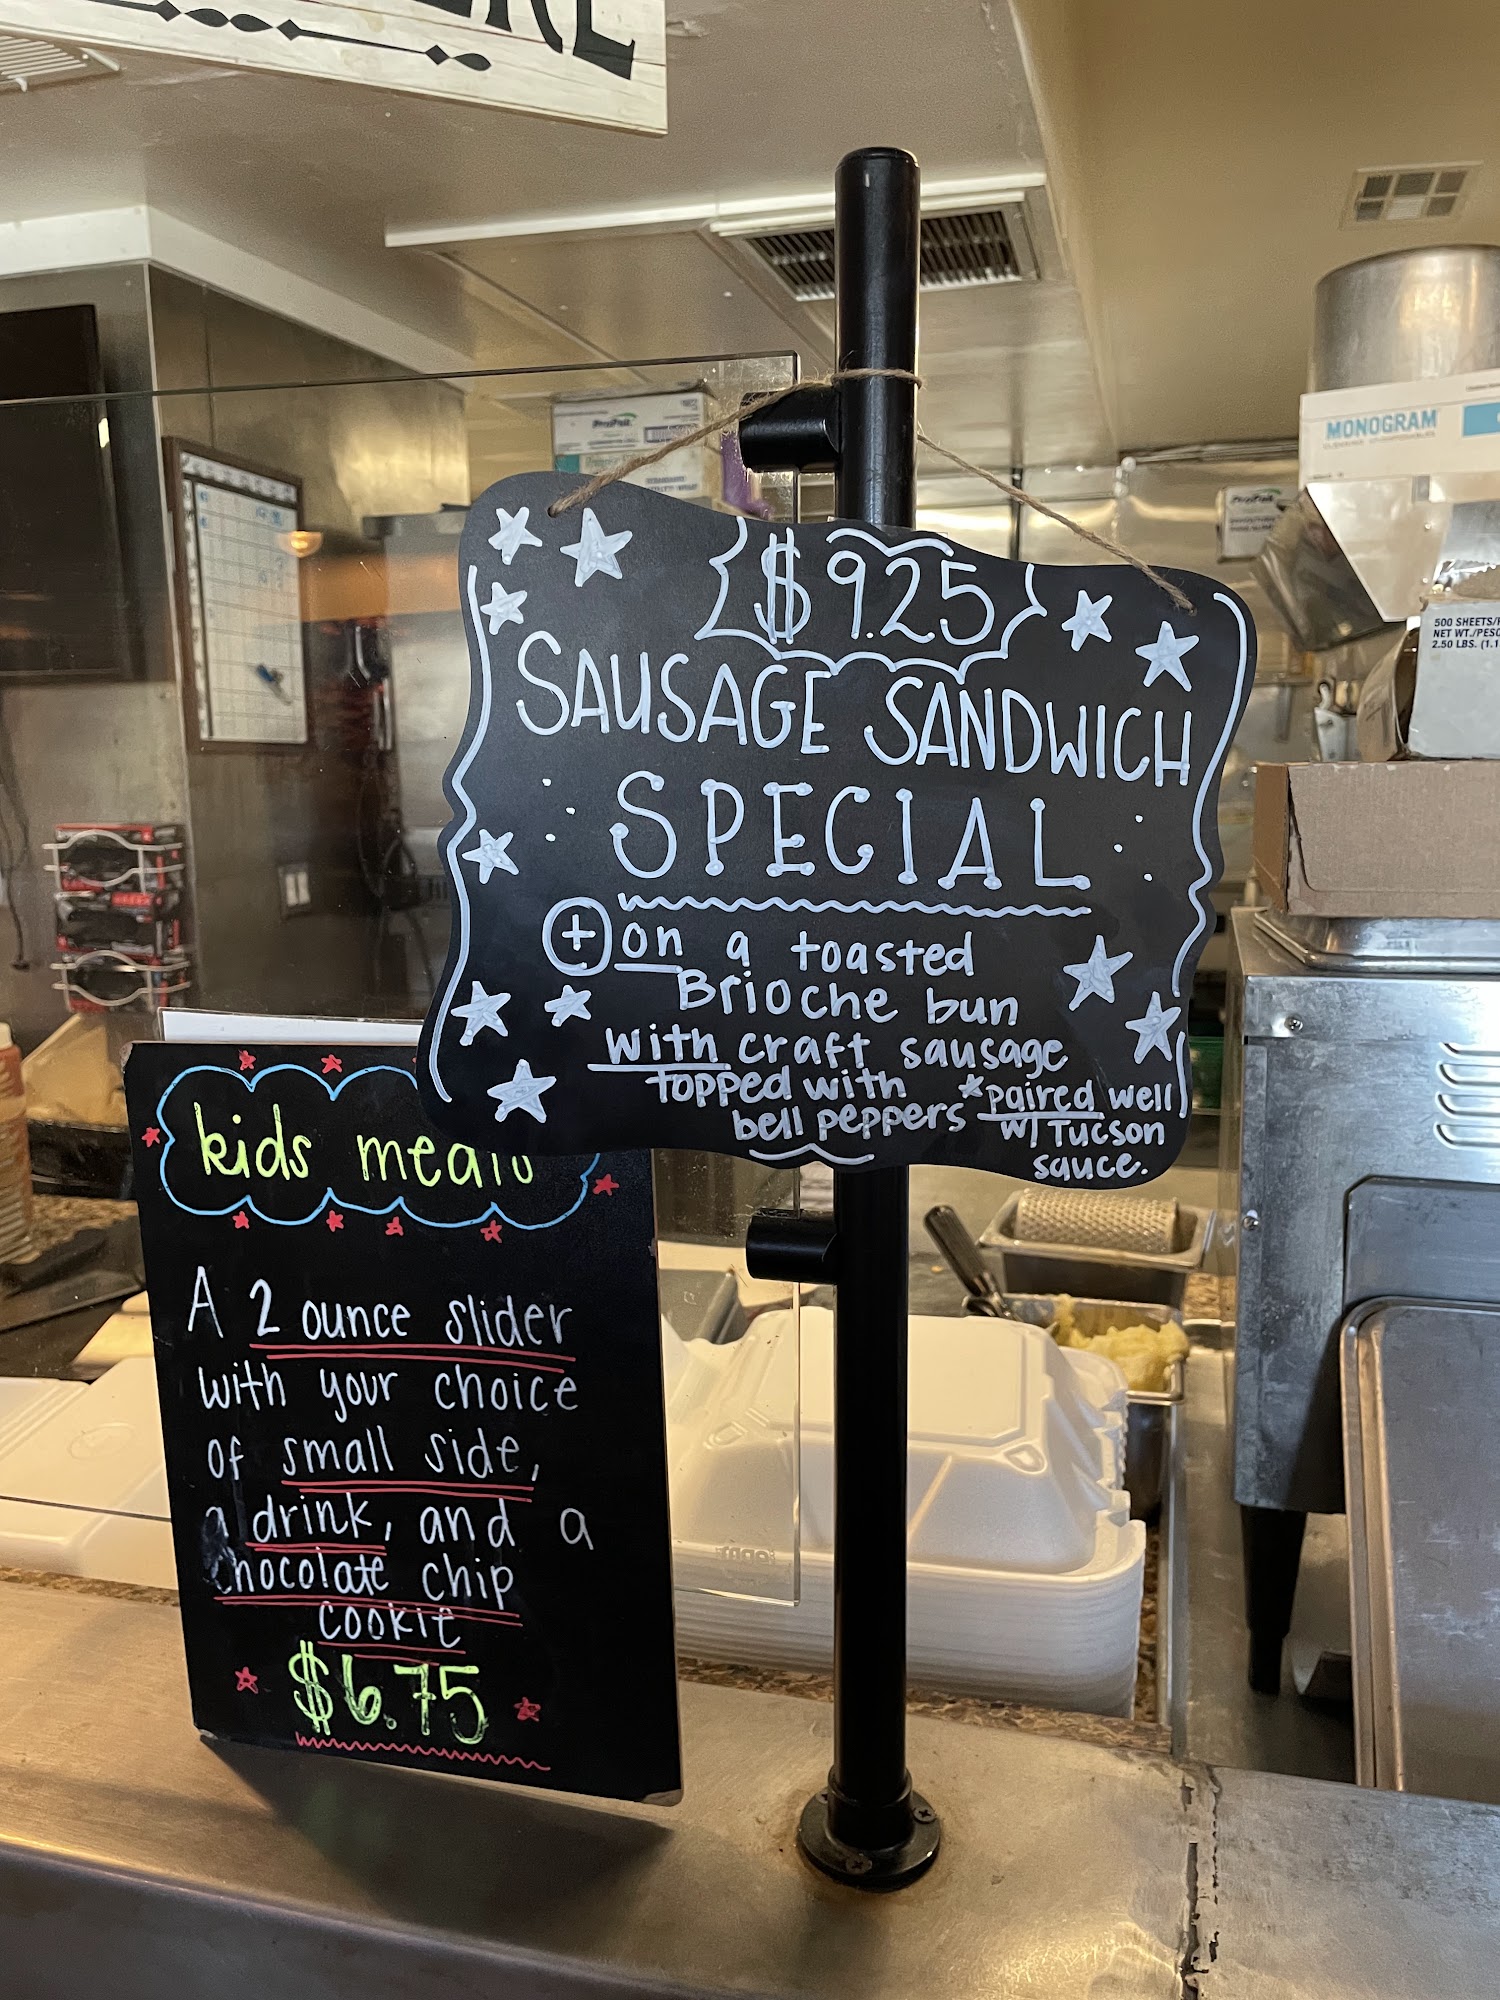 $9.25
SAUSAGE SANDWICH
SPECIAL
+ on a toasted
Brioche bun
with craft sausage
topped with
bell peppers
*paired well
w/ Tucson
sauce.
kids meals
A 2 ounce slider
with your choice
of small side,
a drink, and a
chocolate chip
cookie
$6.75
MONOGRAM
ProPak
ProPak
500 SHEETS/
NET WT./PESO
2.50 LBS. (1.1